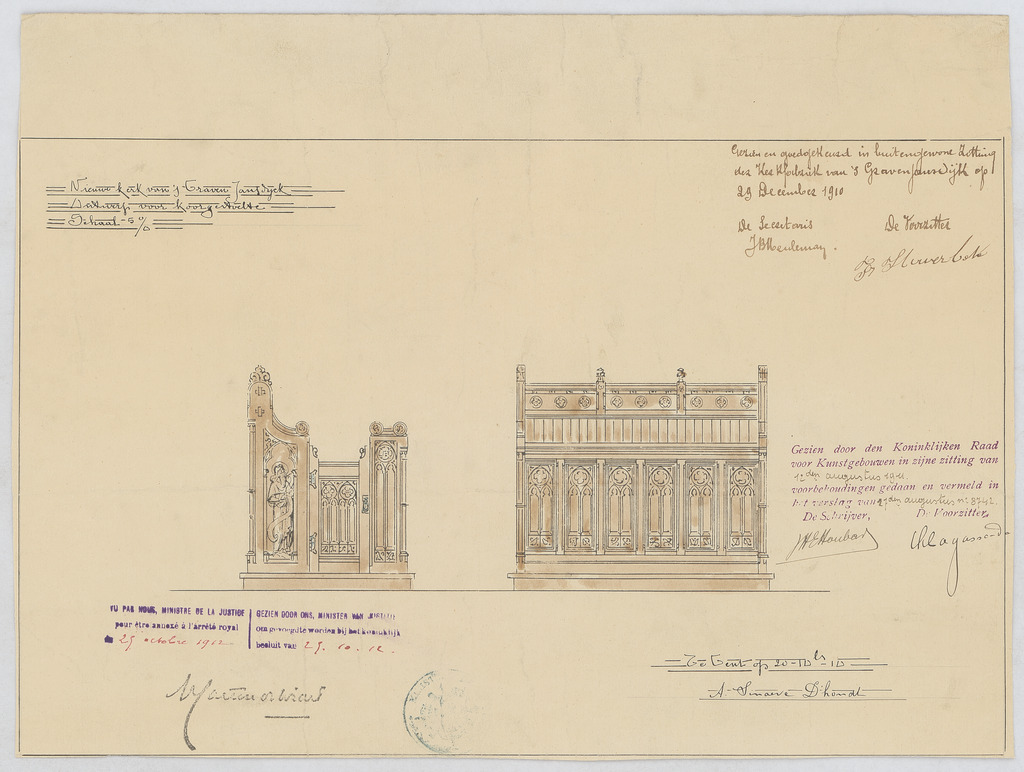 Nieuwe kerk van 's Graven Jansdijck
Ontwerp voor Koorgestoelte
Schaal 5 %
Gezien en goedgekeurd in buitengewone Zitting
des Kerkfabriek van 'S Gravenjansdijk op
29 December 1910
De Secretaris
De Voorzitter
Gezien door den Koninklijken Raad
voor Kunstgebouwen in zijne zitting van
12den augustus 1911.
voorbehoudingen gedaan en vermeld in
het verslag van den augustus nr 8742.
De Schrijver,
De Voorzitter,
VU PAR NOUS, MINISTRE DE LA JUSTICE
pour être annexé à l'arrêté royal
du 29 octobre 1912
GEZIEN DOOR ONS, MINISTER VAN JUSTITIE
om gevoegd te worden bij het koninklijk
besluit van 29. 10. 12.
Te Gent op 20-Xbs-10
A. Sinaeve D'hondt